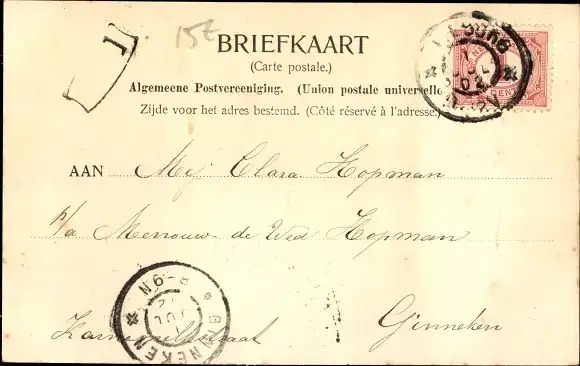 1
15E
BRIEFKAART
(Carte postale.)
Algemeene Postvereeniging. (Union postale universelle
Zijde voor het adres bestemd. (Côté réservé à l'adresse.)
CENT
AAN Mej Clara Hopman
p/a Mevrouw de Wed Hopman
Ginneken
GINNEKEN
8-9N
JUL